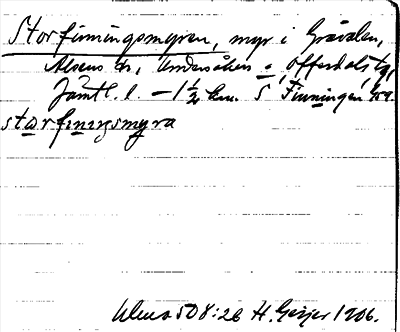 Storfinningsmyren, myr i Gråvalen,
Alsens sn, Undersåkers o, Offerdals tg,
Jämtl. l. – 1½ km S Finningen, kså.
storfiningsmyra
Ulma 508:26 H. Geijer 1906.